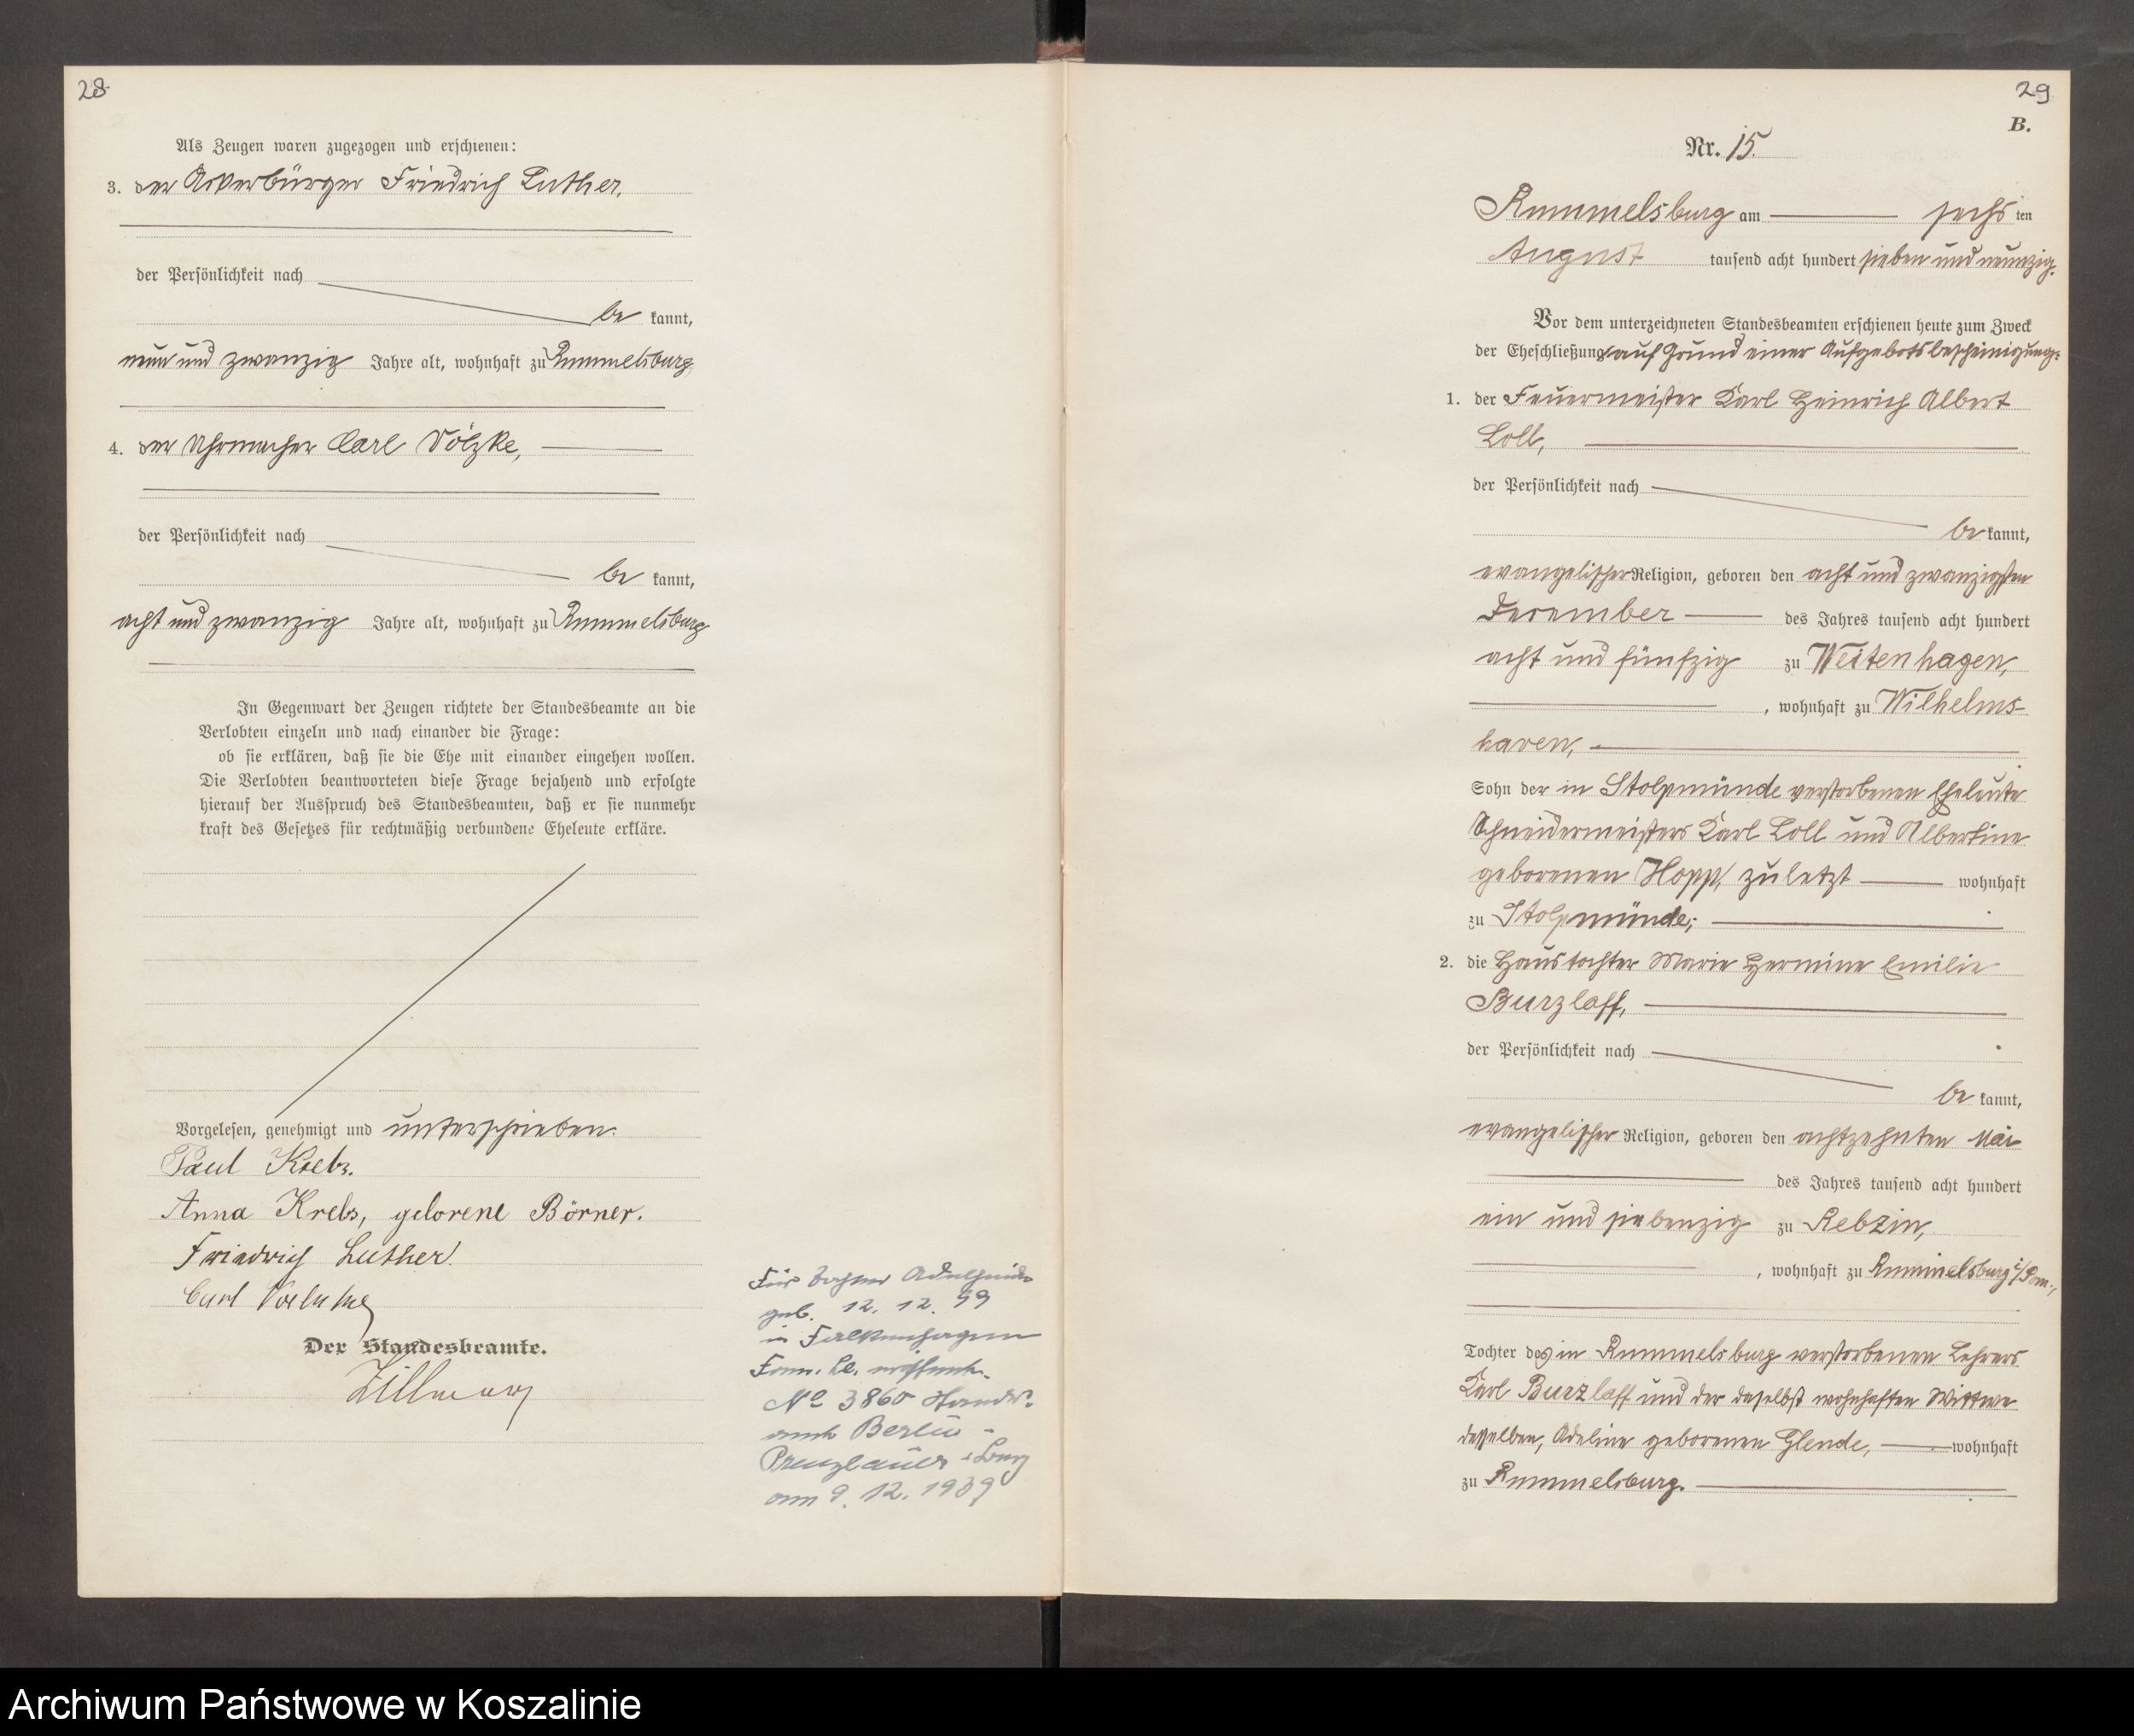 28
Als Zeugen waren zugezogen und erschienen:
3. der Ackerbürger Friedrich Luther,
der Persönlichkeit nach
be kannt,
neun und zwanzig Jahre alt, wohnhaft zu Rummelsburg
4. der Uhrmacher Carl Völzke,
der Persönlichkeit nach
be kannt,
acht und zwanzig Jahre alt, wohnhaft zu Rummelsburg
In Gegenwart der Zeugen richtete der Standesbeamte an die
Verlobten einzeln und nach einander die Frage:
ob sie erklären, daß sie die Ehe mit einander eingehen wollen.
Die Verlobten beantworteten diese Frage bejahend und erfolgte
hierauf der Ausspruch des Standesbeamten, daß er sie nunmehr
kraft des Gesetzes für rechtmäßig verbundene Eheleute erkläre.
Vorgelesen, genehmigt und unterschrieben.
Paul Krebs.
Anna Krebs, geborene Börner.
Friedrich Luther.
Carl
Der Standesbeamte.
Zillmann
Für Tochter Adelheid
geb. 12. 12. 99
in Falkenhagen
Fam.
No 3860 Stands-
amt Berlin -
Prenzlauer - Berg
am 9. 12. 1939
29
B.
Nr. 15.
Rummelsburg am sechs ten
August tausend acht hundert sieben und neunzig.
Vor dem unterzeichneten Standesbeamten erschienen heute zum Zweck
der Eheschließung auf Grund einer Aufgebotsbescheinigung:
1. der Feuermeister Karl Heinrich Albert
Loll,
der Persönlichkeit nach
be kannt,
evangelischer Religion, geboren den acht und zwanzigsten
December des Jahres tausend acht hundert
acht und fünfzig zu Weitenhagen,
, wohnhaft zu Wilhelms-
haven,
Sohn der in Stolpmünde verstorbenen Eheleute
Schneidermeisters Karl Loll und Albertine
geborenen Hopp, zuletzt wohnhaft
zu Stolpmünde;
2. die Haustochter Marie Hermine Emilie
Burzlaff,
der Persönlichkeit nach
be kannt,
evangelischer Religion, geboren den achtzehnten Mai
des Jahres tausend acht hundert
ein und siebenzig zu Rebzin,
, wohnhaft zu Rummelsburg i/Pom.,
Tochter des in Rummelsburg verstorbenen Lehrers
Karl Burzlaff und der daselbst wohnhaften Wittwe
desselben, Adeline geborenen Glende, wohnhaft
zu Rummelsburg.
Archiwum Państwowe w Koszalinie